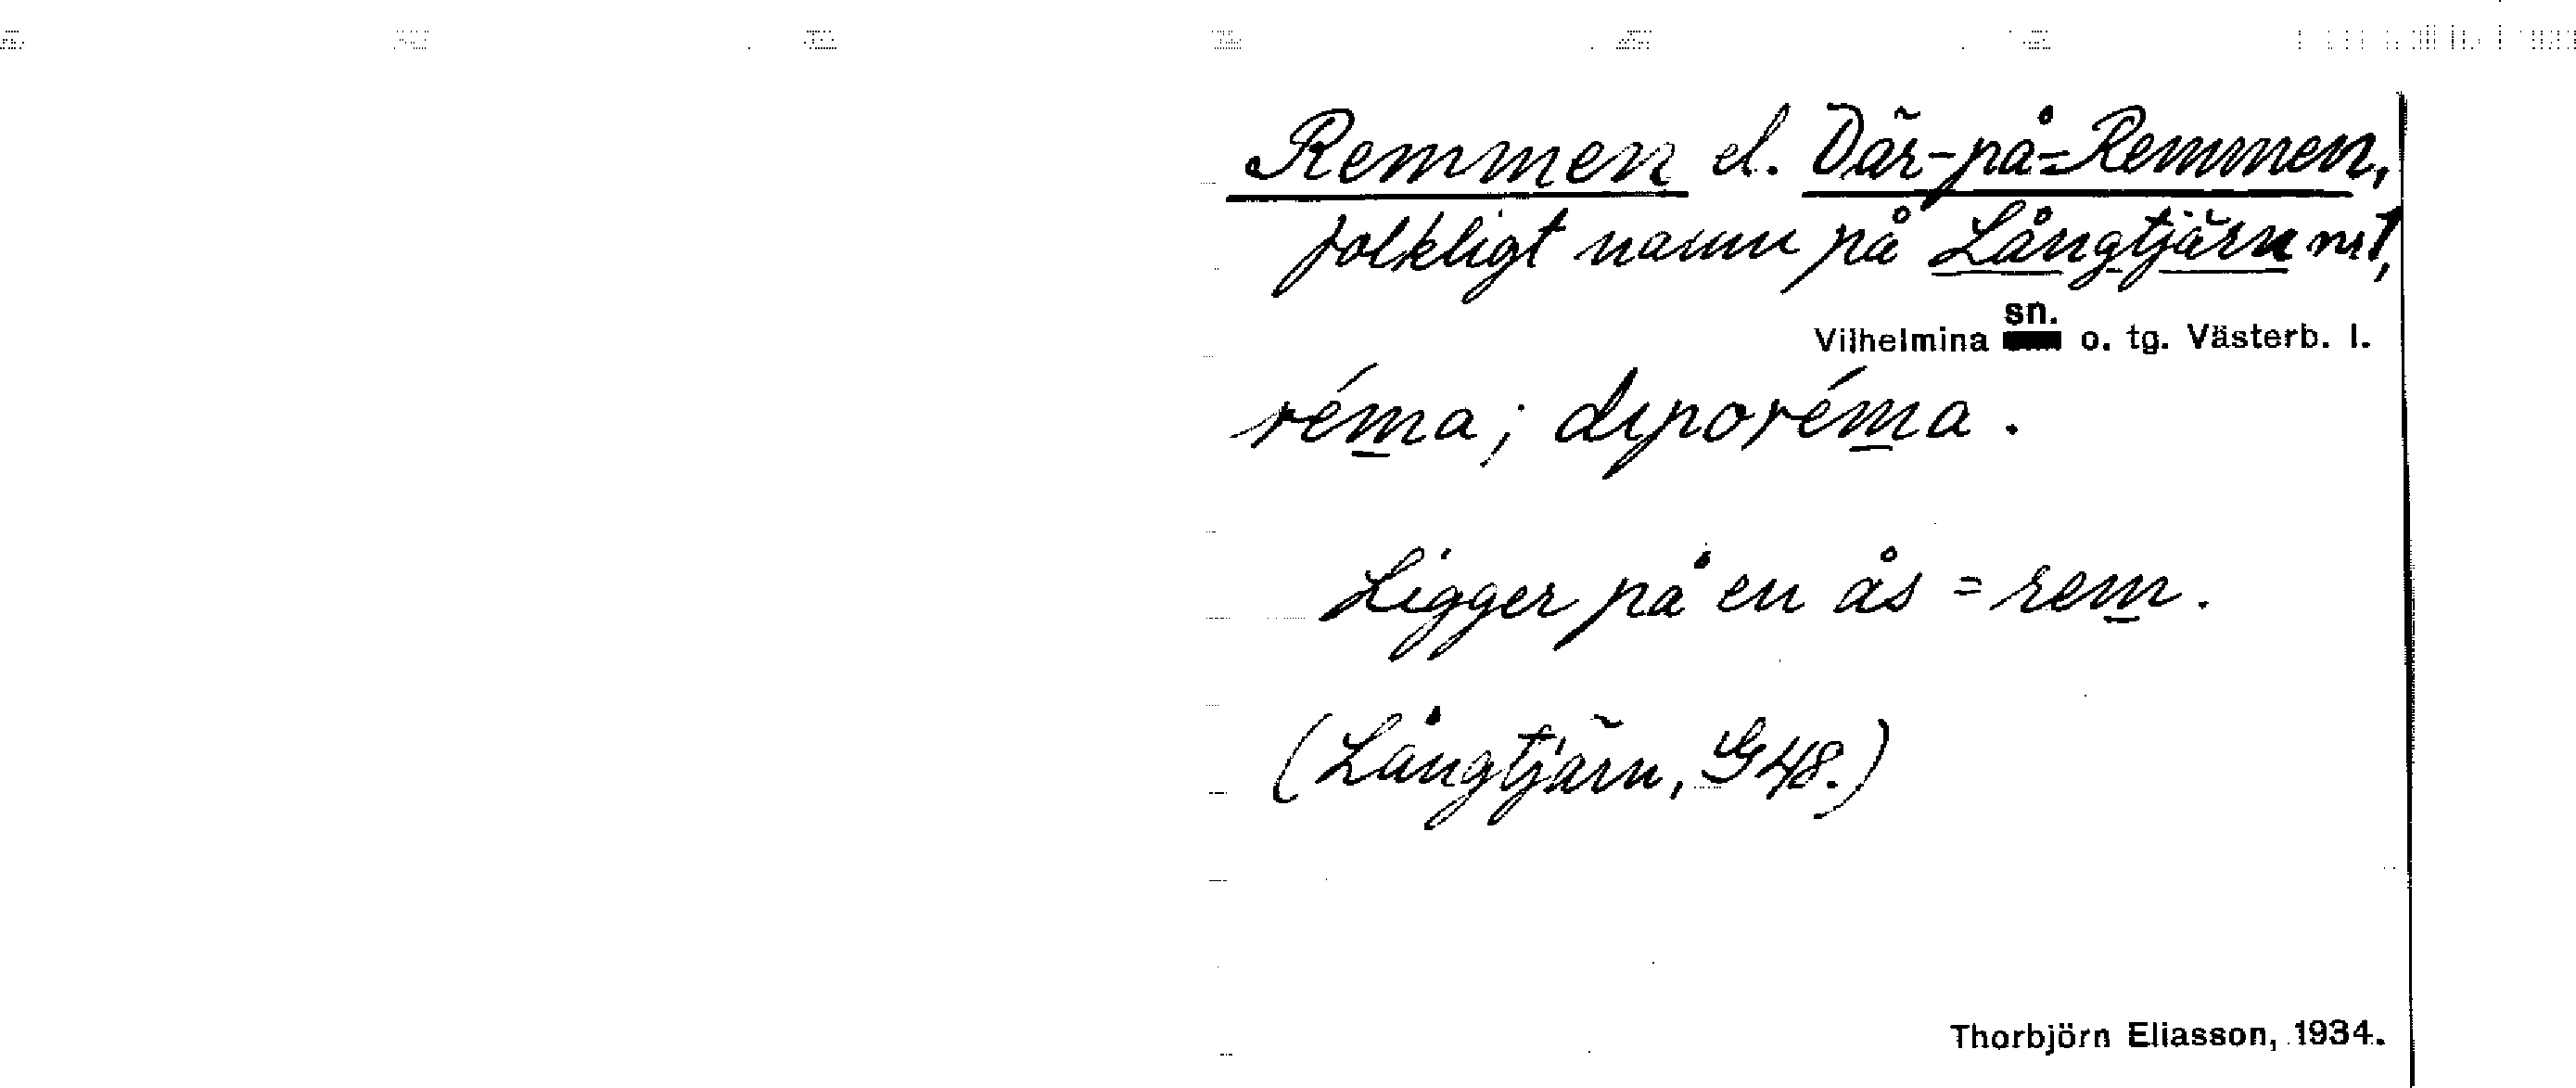 Remmen el. Där-på-Remmen,
folkligt namn på Långtjärn nr 1,
Vilhelmina sn. o. tg. Västerb. l.
réma; dıporéma.
Ligger på en ås = rem.
(Långtjärn, G 48.)
Thorbjörn Eliasson, 1934.